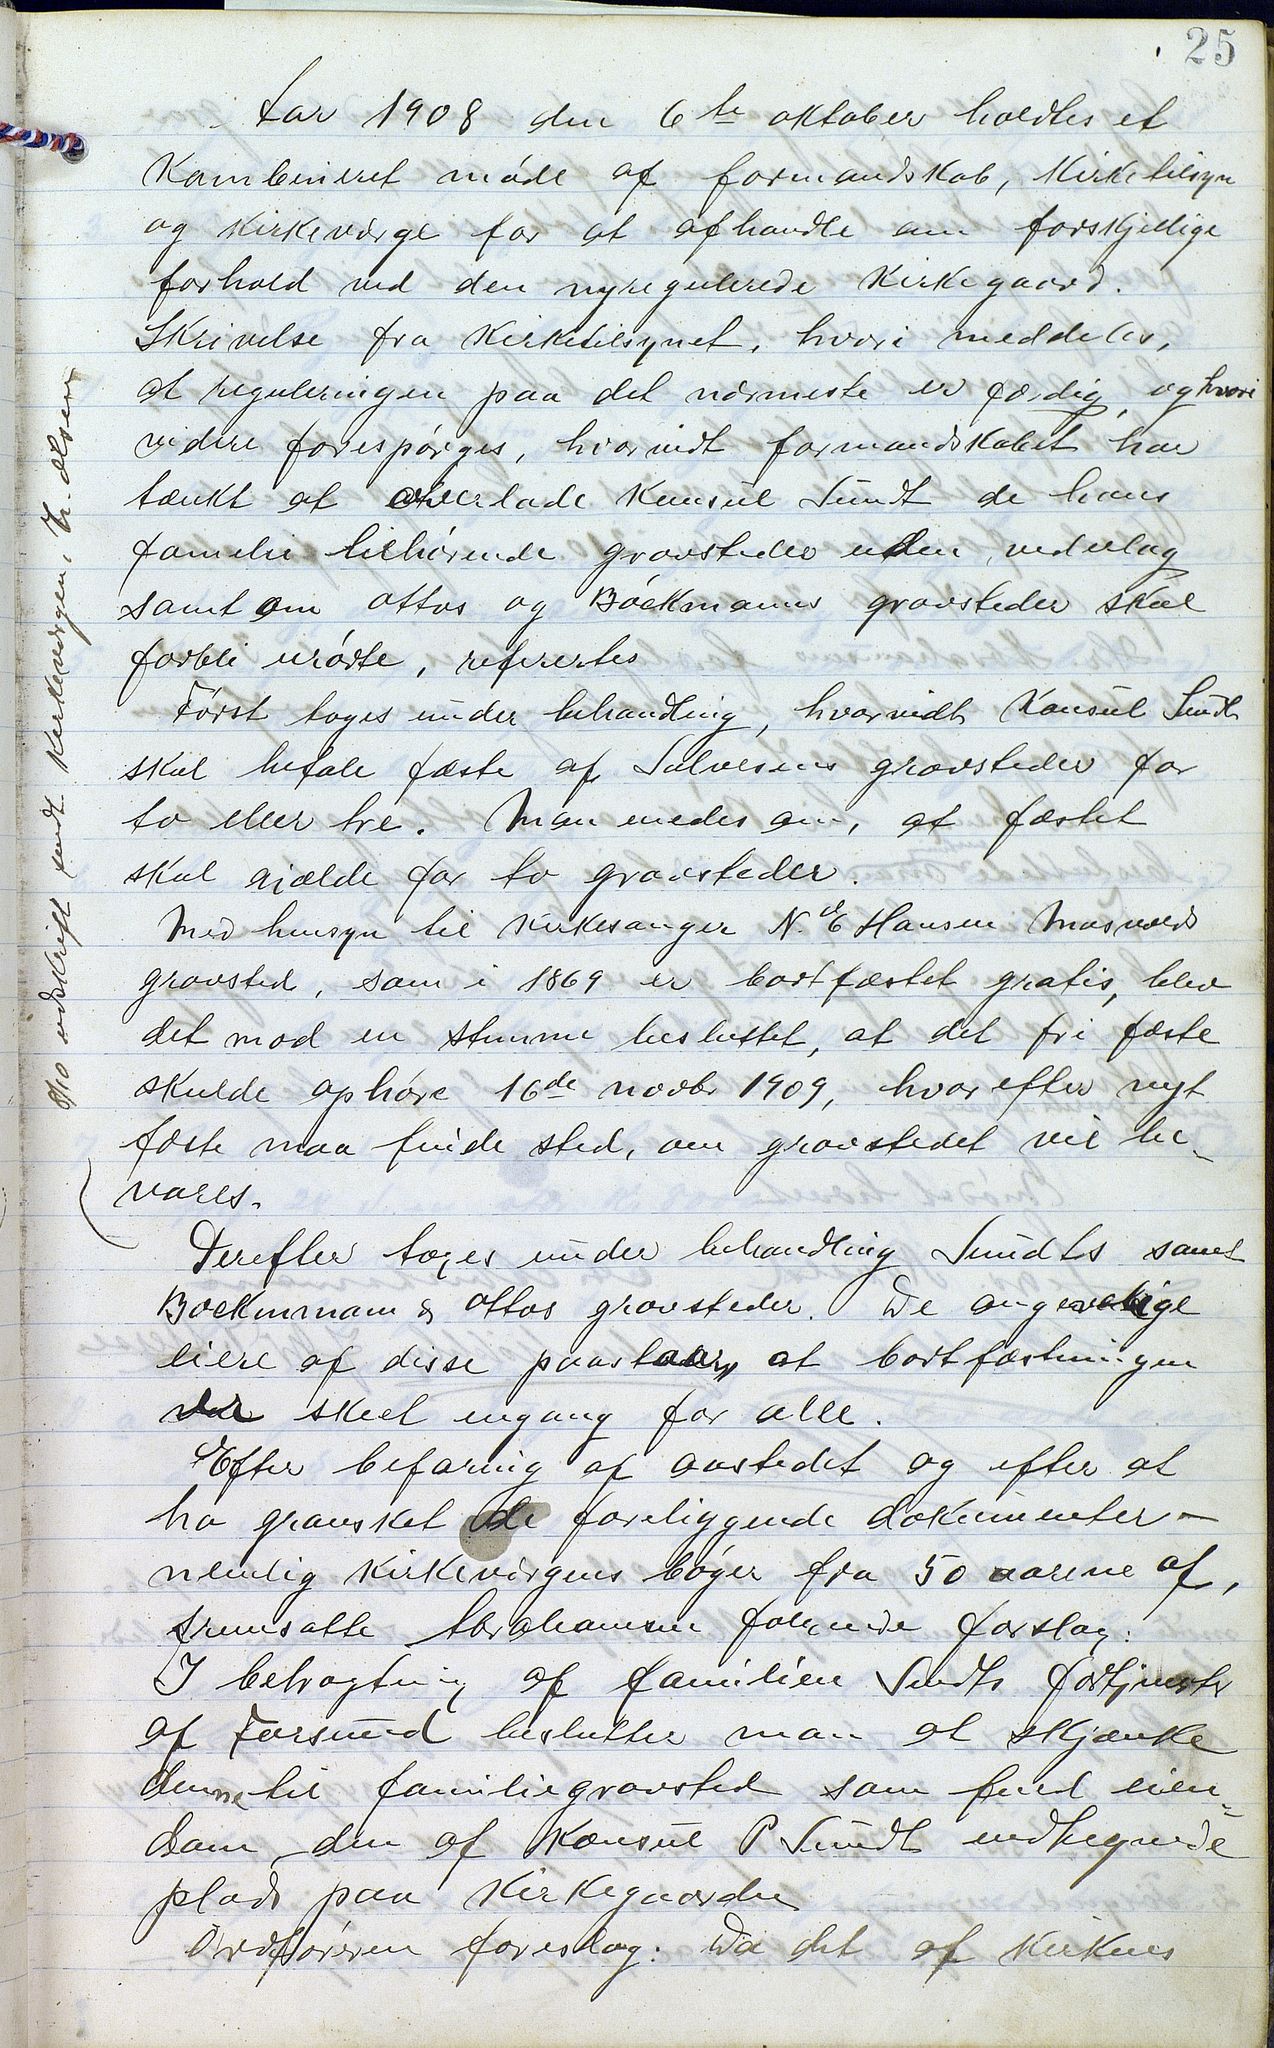 25
Aar 1908 den 6te oktober holdtes et
kombineret møde af formandskab, kirketilsyn
og kirkeværge for at afhandle om forskjellige
forhold ved den nyregulerede kirkegaard.
Skrivelse fra kirketilsynet, hvori meddeles,
at reguleringen paa det nærmeste er færdig, og hvori
videre forespørges, hvorvidt formandskabet har
tænkt at overlade konsul Sundt de hans
familie tilhørende gravsteder uden vederlag
samt om Ottos og Böckmanns gravsteder skal
forbli urørte, refertes
Først toges under behandling, hvorvidt konsul Sundt
skal betale fæste af Salvesens gravsteder for
to eller tre. Man enedes om, at fæstet
skal gjælde for to gravsteder.
Med hensyn til kirkesanger N. E Hansen
gravsted, som i 1869 er bortfæstet gratis, blev
det mod en stemme besluttet, at det fri fæste
skulde ophøre 16de novbr 1909, hvorefter nyt
fæste maa finde sted, om gravstedet vil be-
vares.
Derefter toges under behandling Sundts samt
Bockmmann & Ottos gravsteder. De angivelige
eiere af disse paastaar, at bortfæstningen
er skeet engang for alle.
Efter befaring af aastedet og efter at
ha gransket de foreliggende dokumenter –
nemlig kirkeværgens bøger fra 50 aarene af,
fremsatte Abrahamsen følgende forslag:
I betragtning af familien Sundts fortjenester
af Farsund beslutter man at skjænke
denne til familiegravsted som fuld eien-
dom den af konsul P Sundt indhegnede
plads paa kirkegaarden
Ordføreren foreslog: Da det af kirkens
9/10 udskrift sendt kirkevergen, Th. Olsen